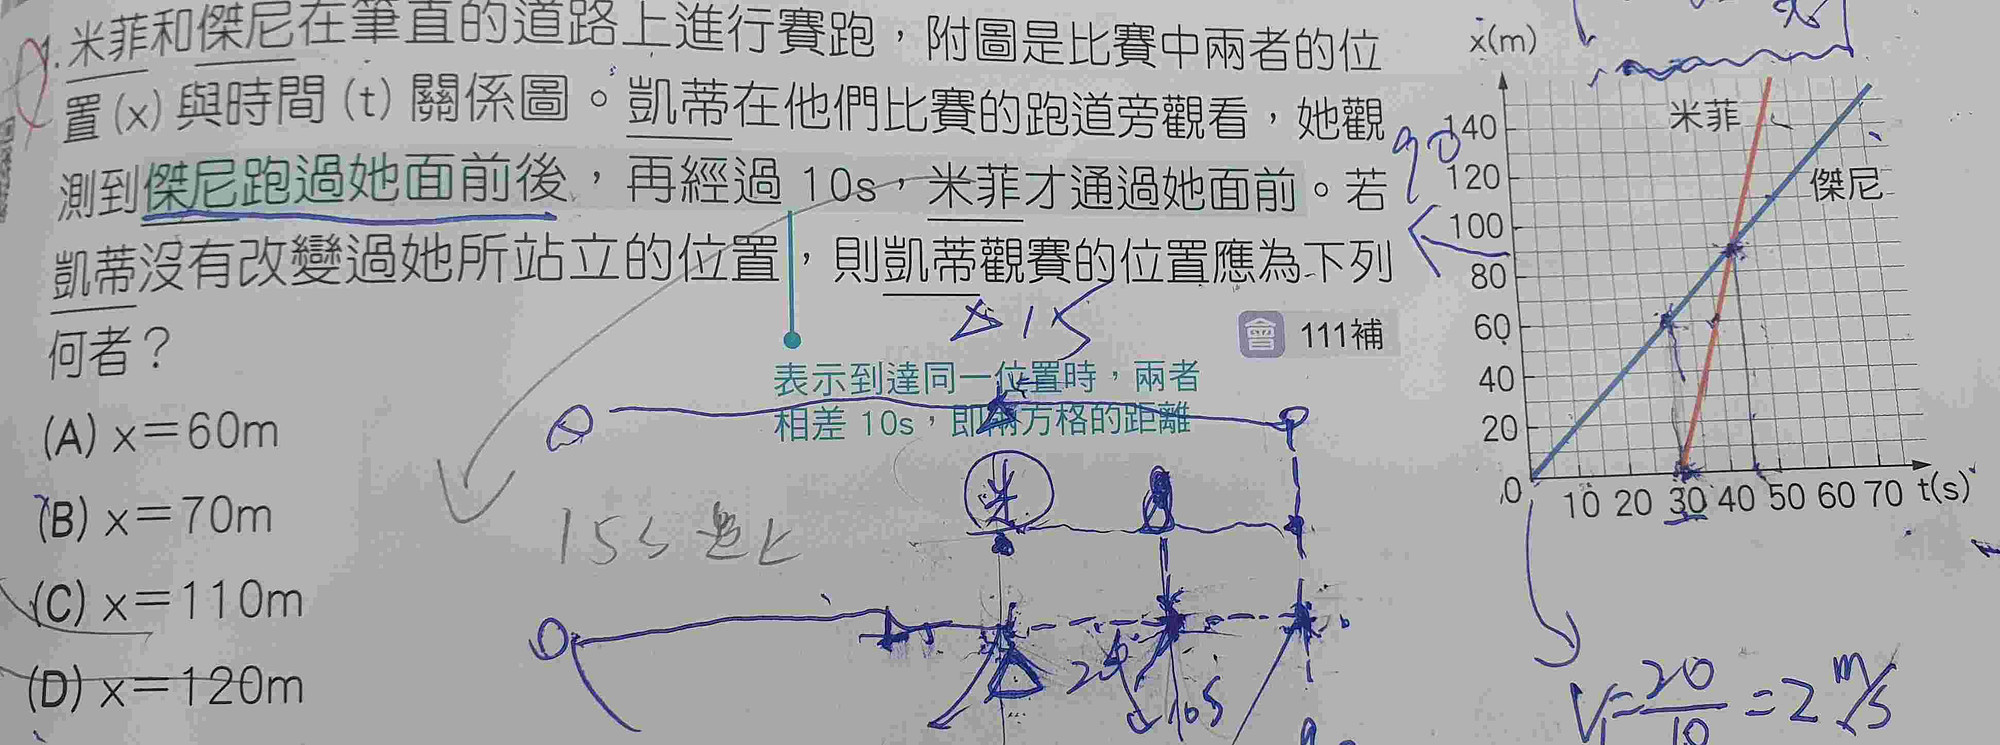 1.米菲和傑尼在筆直的道路上進行賽跑，附圖是比賽中兩者的位
置(x)與時間(t)關係圖。凱蒂在他們比賽的跑道旁觀看，她觀
測到傑尼跑過她面前後，再經過10s，米菲才通過她面前。若
凱蒂沒有改變過她所站立的位置，則凱蒂觀賽的位置應為下列
何者？
會 111補
表示到達同一位置時，兩者
相差10s，即兩方格的距離
(A) x＝60m
(B) x＝70m
(C) x＝110m
(D) x＝120m
△15
米
15s
20
10s
x(m)
90
140
120
100
80
60
40
20
0
10 20 30 40 50 60 70 t(s)
米菲
傑尼
V₁=20/10=2 m/s